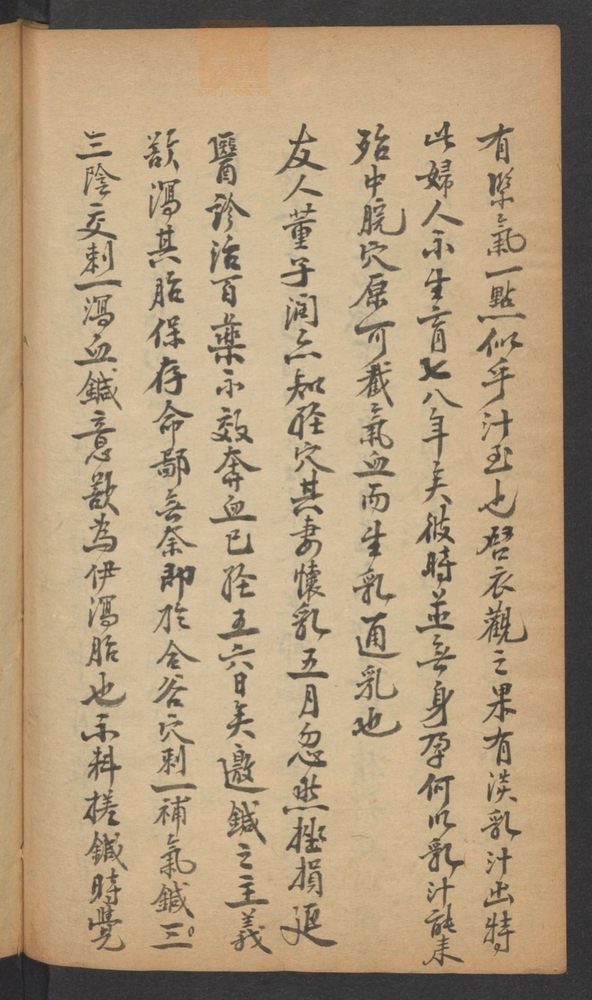 有聚氣一點似乎汁至也啓衣觀之果有淡乳汁出特
此婦人不生育七八年矣彼時並無身孕何以乳汁能來
殆中脘穴原可截氣血而生乳通乳也
友人董子潤亦知經穴其妻懷乳五月忽然挫損延
醫診治百藥不效奔血已經五六日矣邀鍼之主義
欲瀉其胎保存命鄙無奈即於合谷穴刺一補氣鍼三
三陰交刺一瀉血鍼意欲為伊瀉胎也不料搓鍼時覺